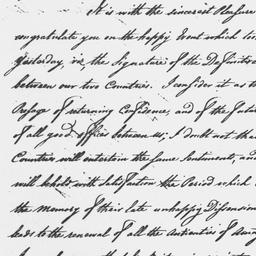 It is with the sincerest Pleasure
congratulate you on the happy Event which too
Yesterday, viz, the Signature of the Definitiv
between our two Countries. I consider it as t
Presage of returning Confidence, and of the futur
of all good Offices between us; I doubt not tha
Countries will entertain the same Sentiments, and
will behold with Satisfaction the Period which
the memory of their late unhappy Dissension
leads to the renewal of all the antient